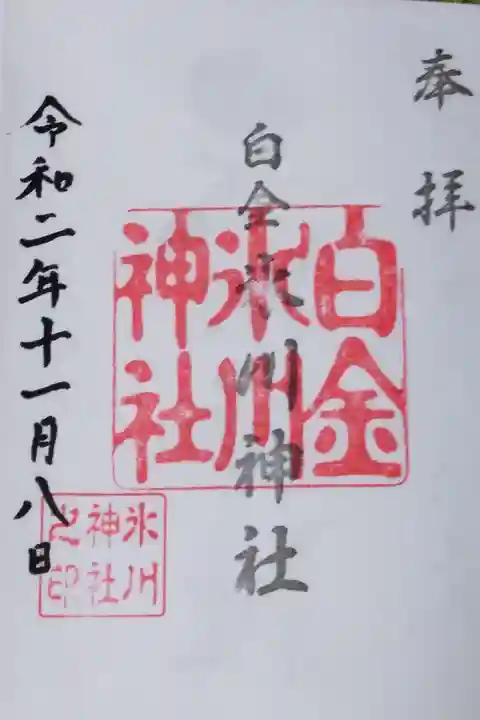 奉拝
白金氷川神社
白金
氷川
神社
令和二年十一月八日
氷川
神社
之印